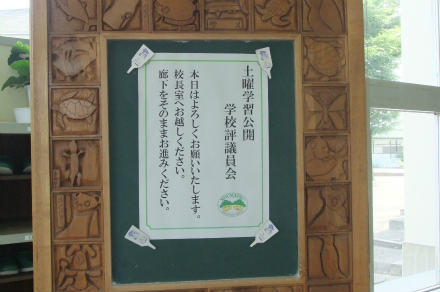 土曜学習公開
学校評議員会
本日はよろしくお願いいたします。
校長室へお越しください。
廊下をそのままお進みください。